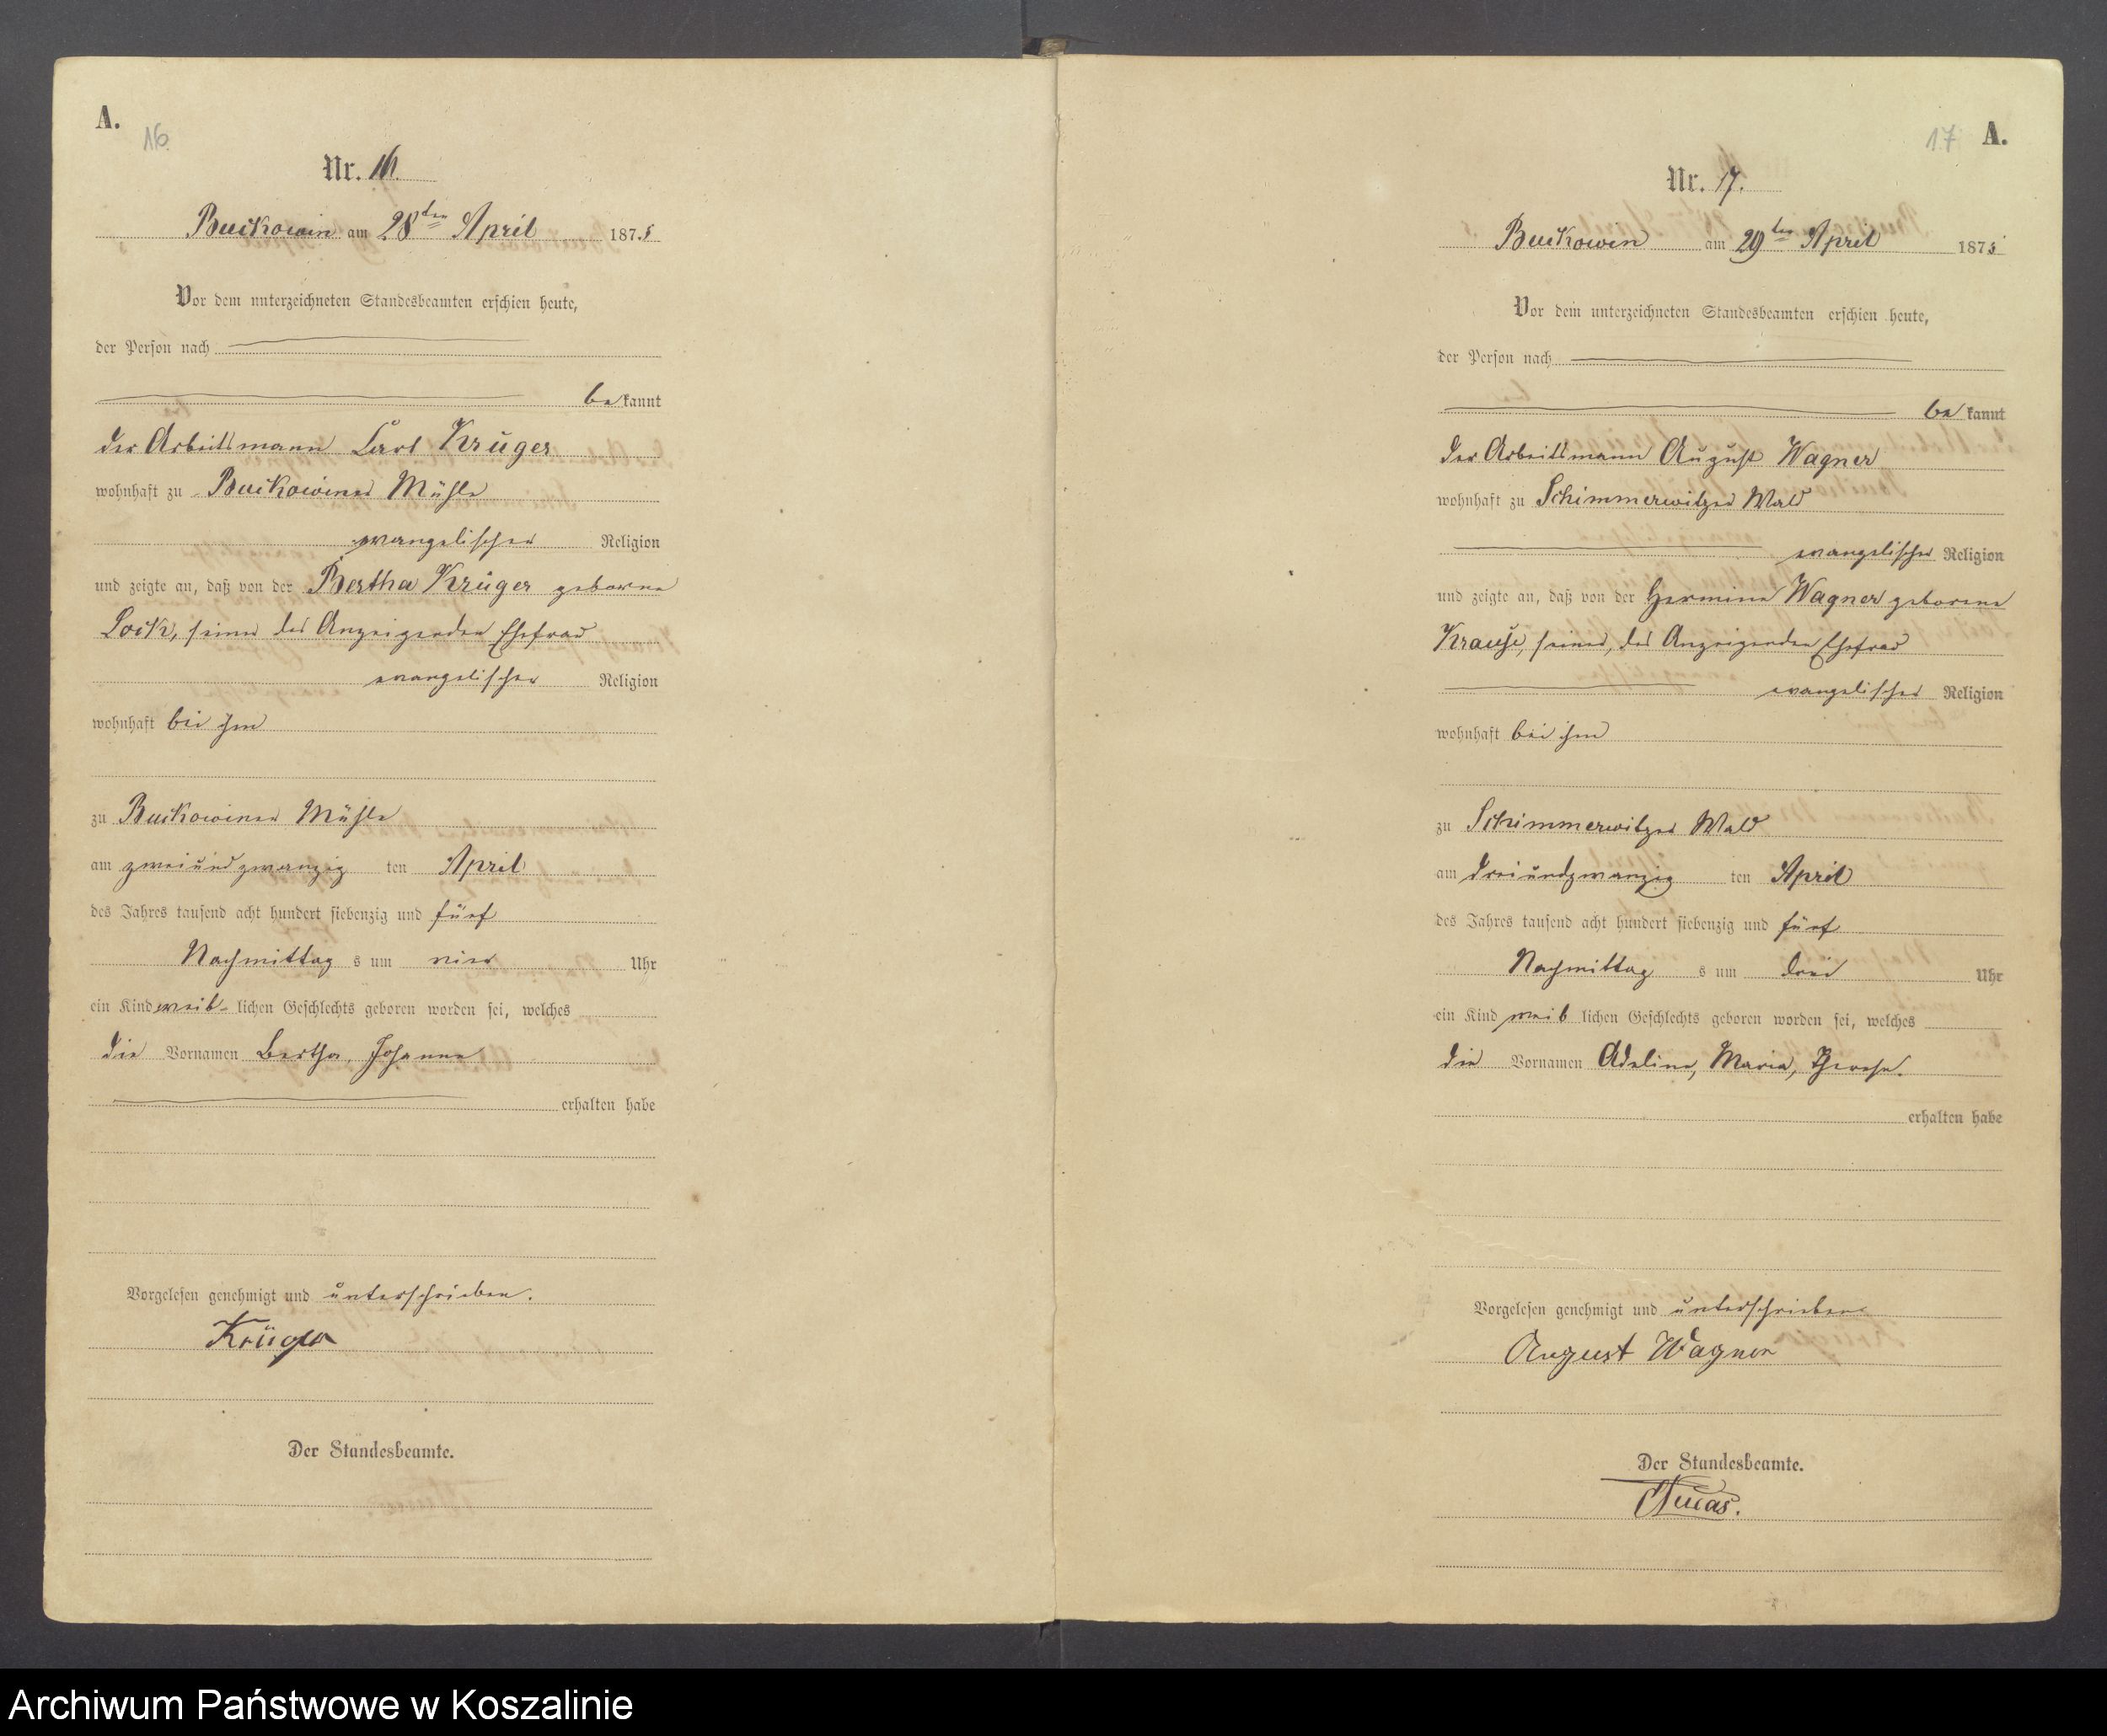 A.
16.
Nr. 16.
Buckowin am 28ten April 1875
Vor dem unterzeichneten Standesbeamten erschien heute,
der Person nach
bekannt
der Arbeitsmann Carl Krüger
wohnhaft zu Buckowiner Mühle
evangelischer Religion
und zeigte an, daß von der Bertha Krüger geborne
Lock, seiner des Anzeigenden Ehefrau
evangelischer Religion
wohnhaft bei ihm
zu Buckowiner Mühle
am zweiundzwanzig ten April
des Jahres tausend acht hundert siebenzig und fünf
Nachmittag s um vier Uhr
ein Kind weib- lichen Geschlechts geboren worden sei, welches
die Vornamen Bertha, Johanna
erhalten habe
Vorgelesen genehmigt und unterschrieben.
Krüger
Der Standesbeamte.
17 A.
Nr. 17.
Buckowin am 29ten April 1875
Vor dem unterzeichneten Standesbeamten erschien heute,
der Person nach
bekannt
der Arbeitsmann August Wagner
wohnhaft zu Schimmerwitzer Wald
evangelischer Religion
und zeigte an, daß von der Hermine Wagner geborene
Krause, seiner, des Anzeigenden Ehefrau
evangelischer Religion
wohnhaft bei ihm
zu Schimmerwitzer Wald
am dreiundzwanzig ten April
des Jahres tausend acht hundert siebenzig und fünf
Nachmittag s um drei Uhr
ein Kind weib lichen Geschlechts geboren worden sei, welches
die Vornamen Adeline, Maria, Therese.
erhalten habe
Vorgelesen genehmigt und unterschrieben
August Wagner
Der Standesbeamte.
Archiwum Państwowe w Koszalinie